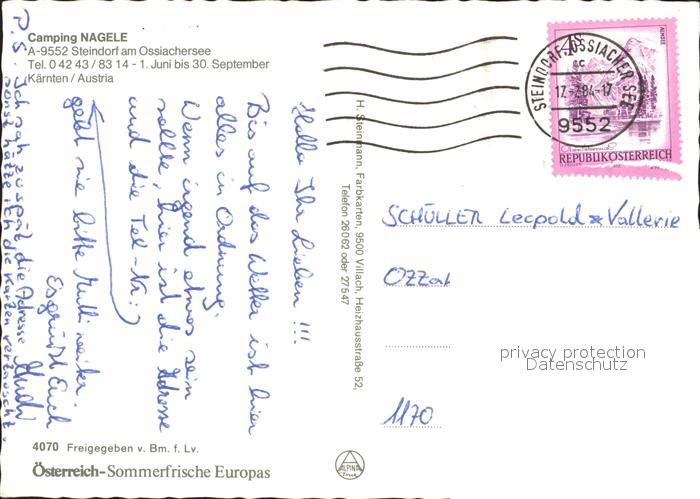 Camping NAGELE
A-9552 Steindorf am Ossiachersee
Tel. 0 42 43 / 83 14 - 1. Juni bis 30. September
Kärnten / Austria
Hallo Ihr Lieben!!!
Bis auf das Wetter ist hier
alles in Ordnung.
Wenn irgend etwas sein
sollte, hier ist die Adresse
und die Tel-Nr:
gebt sie bitte Mutti weiter.
Es grüßt Euch
P.S. Ich sah zu spät die Adresse
sonst hätte ich die Karten vertauscht.
4070 Freigegeben v. Bm. f. Lv.
Österreich-Sommerfrische Europas
H. Steinmann, Farbkarten, 9500 Villach, Heizhausstraße 52,
Telefon 26062 oder 27547
ALPINA
Druck
4S
ALMSEE
REPUBLIK ÖSTERREICH
STEINDORF-OSSIACHER SEE
cc
17.-7.84-17
9552
SCHÜLLER Leopold & Vallerie
1170
privacy protection
Datenschutz